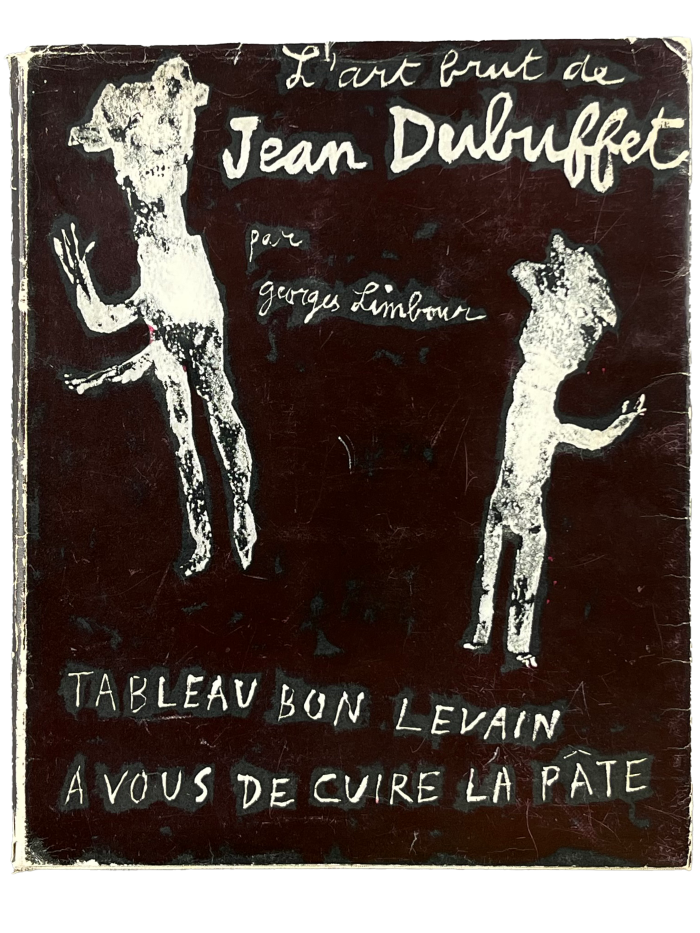 L'art brut de
Jean Dubuffet
par
georges Limbour
TABLEAU BON LEVAIN
A VOUS DE CUIRE LA PÂTE